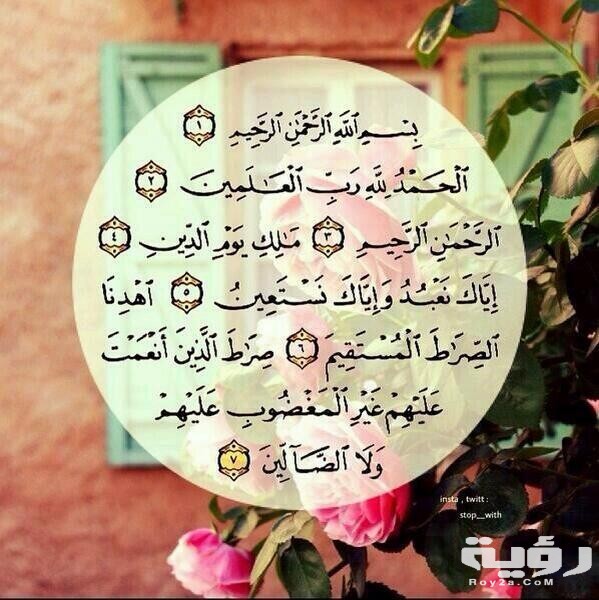 بِسْمِ ٱللَّهِ ٱلرَّحْمَٰنِ ٱلرَّحِيمِ ١
ٱلْحَمْدُ لِلَّهِ رَبِّ ٱلْعَٰلَمِينَ ٢
ٱلرَّحْمَٰنِ ٱلرَّحِيمِ ٣ مَٰلِكِ يَوْمِ ٱلدِّينِ ٤
إِيَّاكَ نَعْبُدُ وَإِيَّاكَ نَسْتَعِينُ ٥ ٱهْدِنَا
ٱلصِّرَٰطَ ٱلْمُسْتَقِيمَ ٦ صِرَٰطَ ٱلَّذِينَ أَنْعَمْتَ
عَلَيْهِمْ غَيْرِ ٱلْمَغْضُوبِ عَلَيْهِمْ
وَلَا ٱلضَّآلِّينَ ٧
insta , twitt :
stop__with
رؤية
Roy2a.CoM